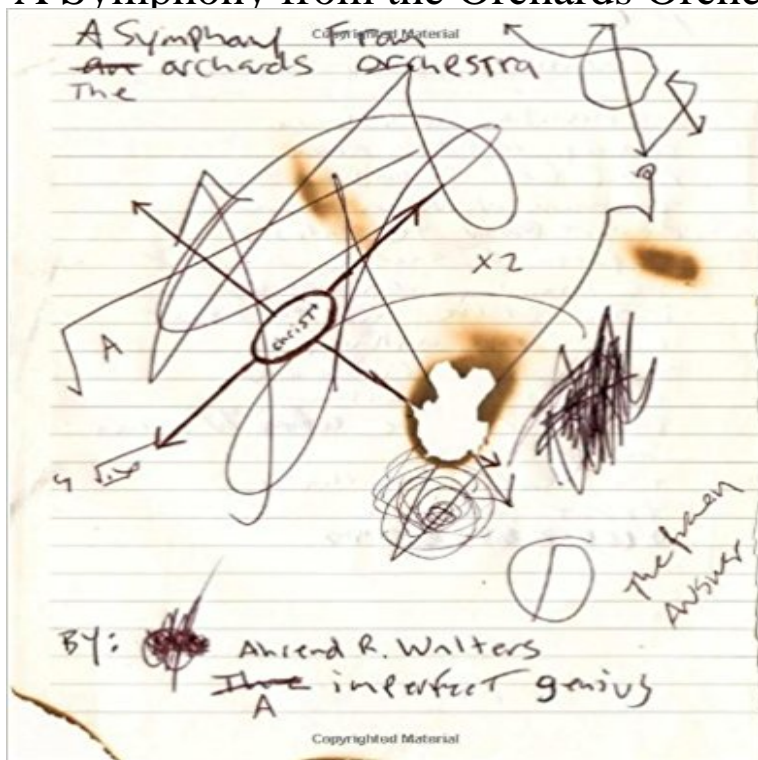 A Symphony from the Orchards Orche
Copyrighted Material
A Symphony From
orchards orchestra
The
x2
christ
A
The
Answer
BY: Ahrend R. Walters
The imperfect genius
A
Copyrighted Material